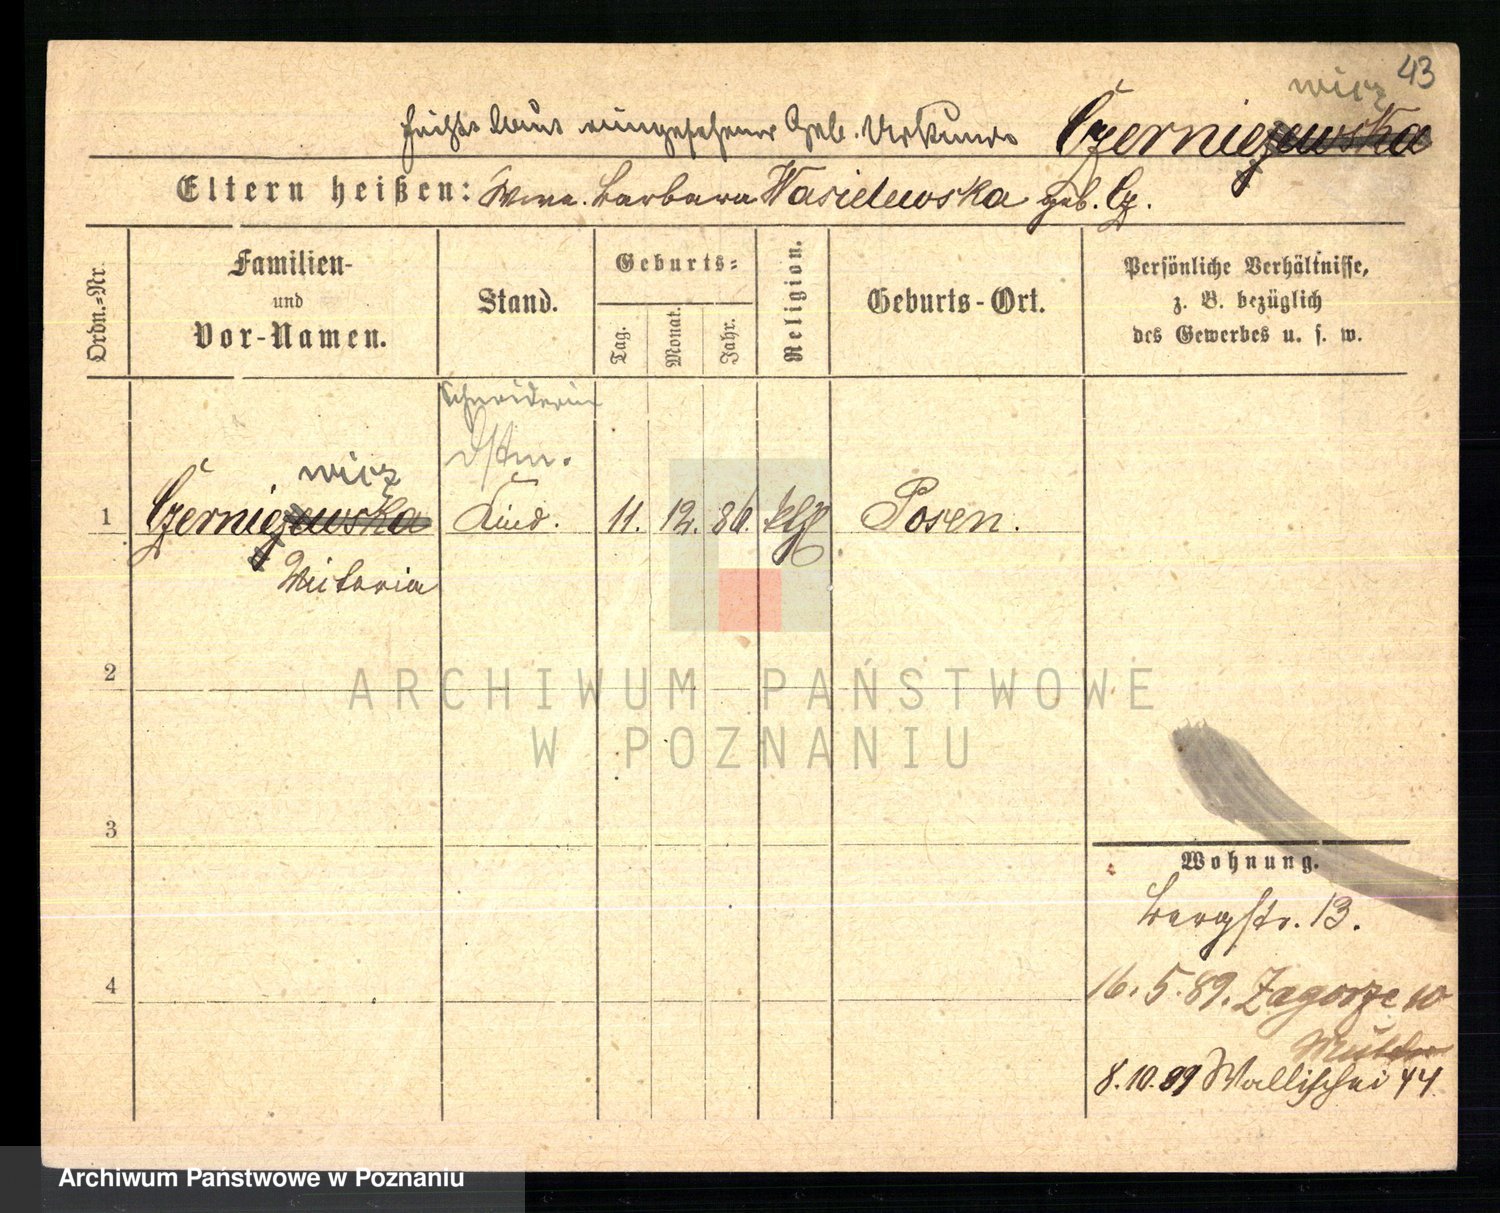 43
wicz
heißt laut eingesehener Geb. Urkunde Czerniejewska
Eltern heißen: Wwe. Barbara Wasielewska geb. Cz.
Ordn.=Nr.
Familien-
und
Vor-Namen.
Stand.
Geburts=
Tag.
Monat.
Jahr.
Religion.
Geburts-Ort.
Persönliche Verhältnisse,
z. B. bezüglich
des Gewerbes u. s. w.
Schneiderin
wicz
1 Czerniejewska Kind. 11. 12. 86. kth Posen.
Victoria
2
ARCHIWUM PAŃSTWOWE
W POZNANIU
3
Wohnung.
Bergstr. 13.
4
16. 5. 89. Zagorze 10
Mutter
8. 10. 89 Wallischei 44.
Archiwum Państwowe w Poznaniu